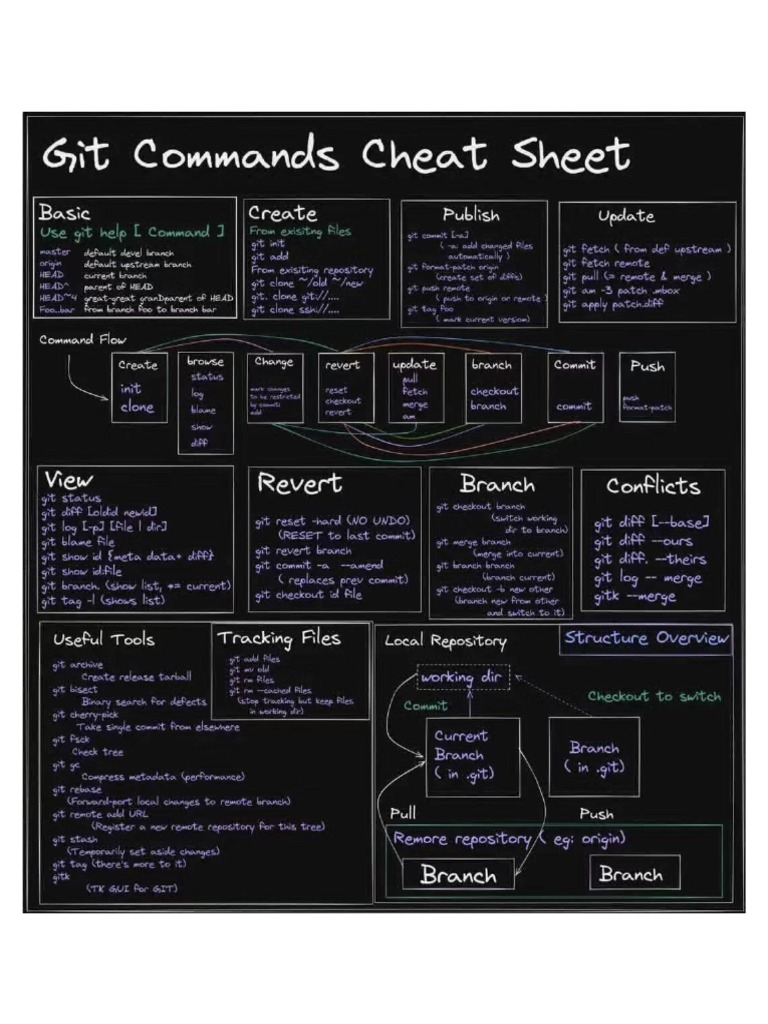 Git Commands Cheat Sheet
Basic
Use git help [ Command ]
master default devel branch
origin default upstream branch
HEAD current branch
HEAD^ parent of HEAD
HEAD^4 great-great grandparent of HEAD
Foo..bar from branch foo to branch bar
Create
From exisiting files
git init
git add
From exisiting repository
git clone ~/old ~/new
git. clone git://....
git clone ssh://....
Publish
git commit [-a]
( -a: add changed files
automatically )
git format-patch origin
(create set of diffs)
git push remote
( push to origin or remote )
git tag foo
( mark current version)
Update
git fetch ( from def upstream )
git fetch remote
git pull (= remote & merge )
git am -3 patch .mbox
git apply patch.diff
Command Flow
Create
init
clone
browse
status
log
blame
show
diff
Change
mark changes
to be restricted
by commit:
add
revert
reset
checkout
revert
update
pull
fetch
merge
am
branch
checkout
branch
Commit
commit
Push
push
format-patch
View
git status
git diff [oldid newid]
git log [-p] [file | dir]
git blame file
git show id {meta data+ diff}
git show id:file
git branch. (show list, *= current)
git tag -l (shows list)
Revert
git reset -hard (NO UNDO)
(RESET to last commit)
git revert branch
git commit -a --amend
( replaces prev commit)
git checkout id file
Branch
git checkout branch
(switch working
dir to branch)
git merge branch
(merge into current)
git branch branch
(branch current)
git checkout -b new other
(branch new from other
and switch to it)
Conflicts
git diff [--base]
git diff --ours
git diff. --theirs
git log -- merge
gitk --merge
Useful Tools
git archive
Create release tarball
git bisect
Binary search for defects
git cherry-pick
Take single commit from elsewhere
git fsck
Check tree
git gc
Compress metadata (performance)
git rebase
(Forward-port local changes to remote branch)
git remote add URL
(Register a new remote repository for this tree)
git stash
(Temporarily set aside changes)
git tag (there's more to it)
gitk
(TK GUI for GIT)
Tracking Files
git add files
git mv old
git rm files
git rm --cached files
(stop tracking but keep files
in working dir)
Local Repository
Structure Overview
working dir
Commit
Checkout to switch
Current
Branch
( in .git)
Branch
( in .git)
Pull
Push
Remore repository ( eg: origin)
Branch
Branch